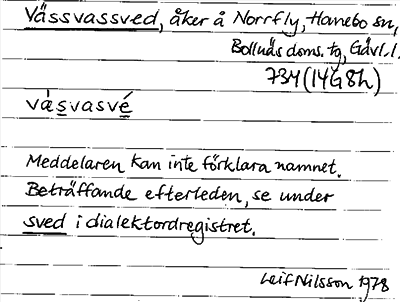 Vässvassved, åker å Norrfly, Hanebo sn,
Bollnäs doms. tg, Gävl. l.
734 (14G8h)
vä́svasvé
Meddelaren kan inte förklara namnet.
Beträffande efterleden, se under
sved i dialektordregistret.
Leif Nilsson 1978